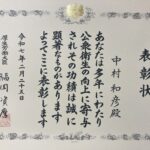 表彰状
中村和彦殿
あなたは多年にわたり
公衆衛生の向上に寄与
されその功績は誠に
顕著なものがあります
よってここに表彰します
令和七年二月二十五日
厚生労働大臣
福岡資麿